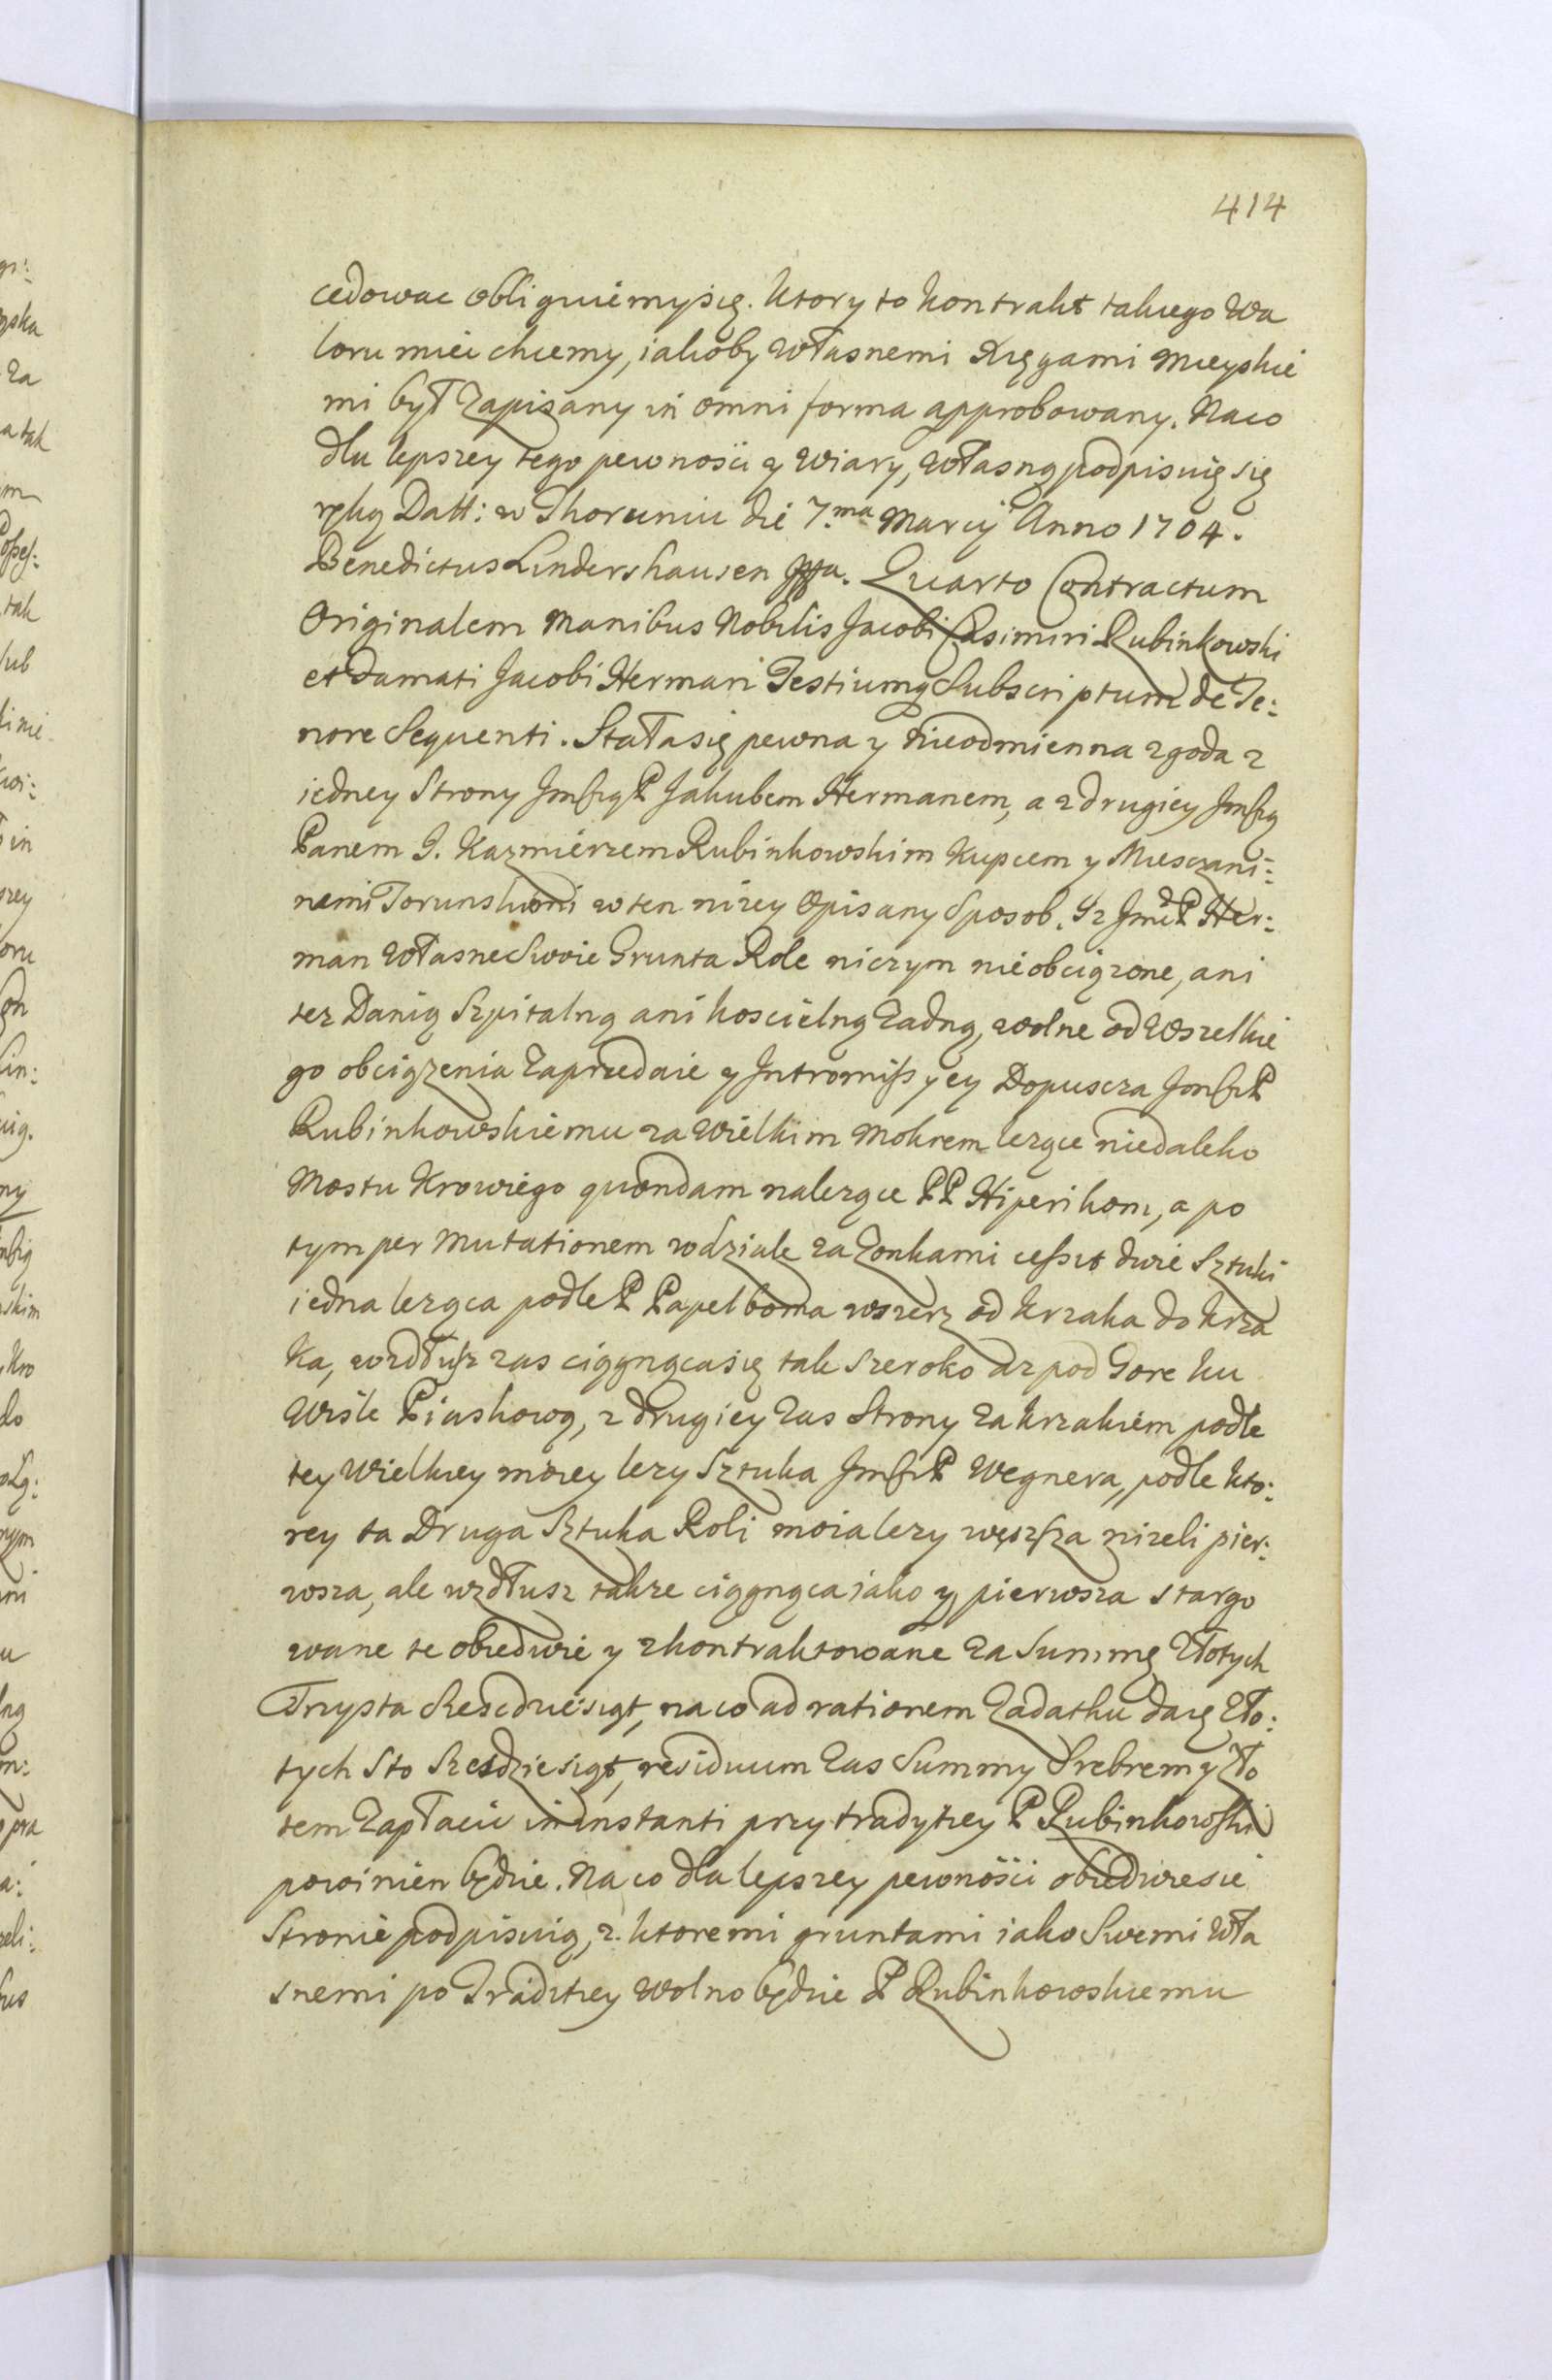 414
cedowac obliguiemysię. Ktory to kontrakt takiego Wa
loru miec chcemy, iakoby własnemi Xięgami Mieyskie
mi był Zapisany in omni forma approbowany. Naco
dla lepszey tego pewnosci y Wiary, własną podpisuię się
ręką Datt: w Thoruniu die 7.ma Marcij Anno 1704.
Benedictus Lindershausen Quarto Contractum
Originalem Manibus Nobilis Jacobi Casimiri Rubinkowski
et Famati Jacobi Herman Testiumq Subscriptum de Te:
nore Sequenti. Stałasię pewna y nieodmienna zgoda z
iedney Strony P Jakubem Hermanem, a z drugiey
Panem J. Kazmierzem Rubinkowskim Kupcem y Mieszani:
nemi Torunskiemi w ten nizey Opisany Sposob. Iz P Her:
man własne Swoie Grunta Role niczym nieobciązone, ani
tez Danią Szpitalną ani koscielną Zadną, wolne od Wszelkie
go obciązenia Zaprzedaie y Intromissyey Dopuscza P
Rubinkowskiemu za Wielkim Mokrem lezące niedaleko
Mostu Krowiego quondam nalezące PP Hiperikom, a po
tym per Mutationem wdziale za Zonkami cessit dwie Sztuki
iedna lezgca podle P Papelboma wszerz od krzaka do krza
ka, wzdłusz zas ciągnącasię tak szeroko az pod Gore ku
Wisle Piaskową, z drugiey Zas Strony za krzakiem podle
tey Wielkiey moiey lezy Sztuka P Wegnera, podle kto:
rey ta Druga Sztuka Roli moia lezy węzsza nizeli pier:
wsza, ale wzdłusz takze ciągnąca iako y pierwsza stargo
wane te obiedwie y zkontraktowane Za Summę Złotych
Trzysta Szescdziesiąt, naco ad rationem Zadatku daię Zło:
tych Sto Szesdziesiąt, residuum Zas Summy Srebrem y Zło
tem Zapłacic in instanti przy tradytiey P Rubinkowski
powinien będzie. Na co dla lepszey pewnosci obiedwiesie
Stronie podpisuią, z. ktoremi gruntami iako Swemi Wła
snemi po Traditiey Wolno będzie P Rubinkowskiemu